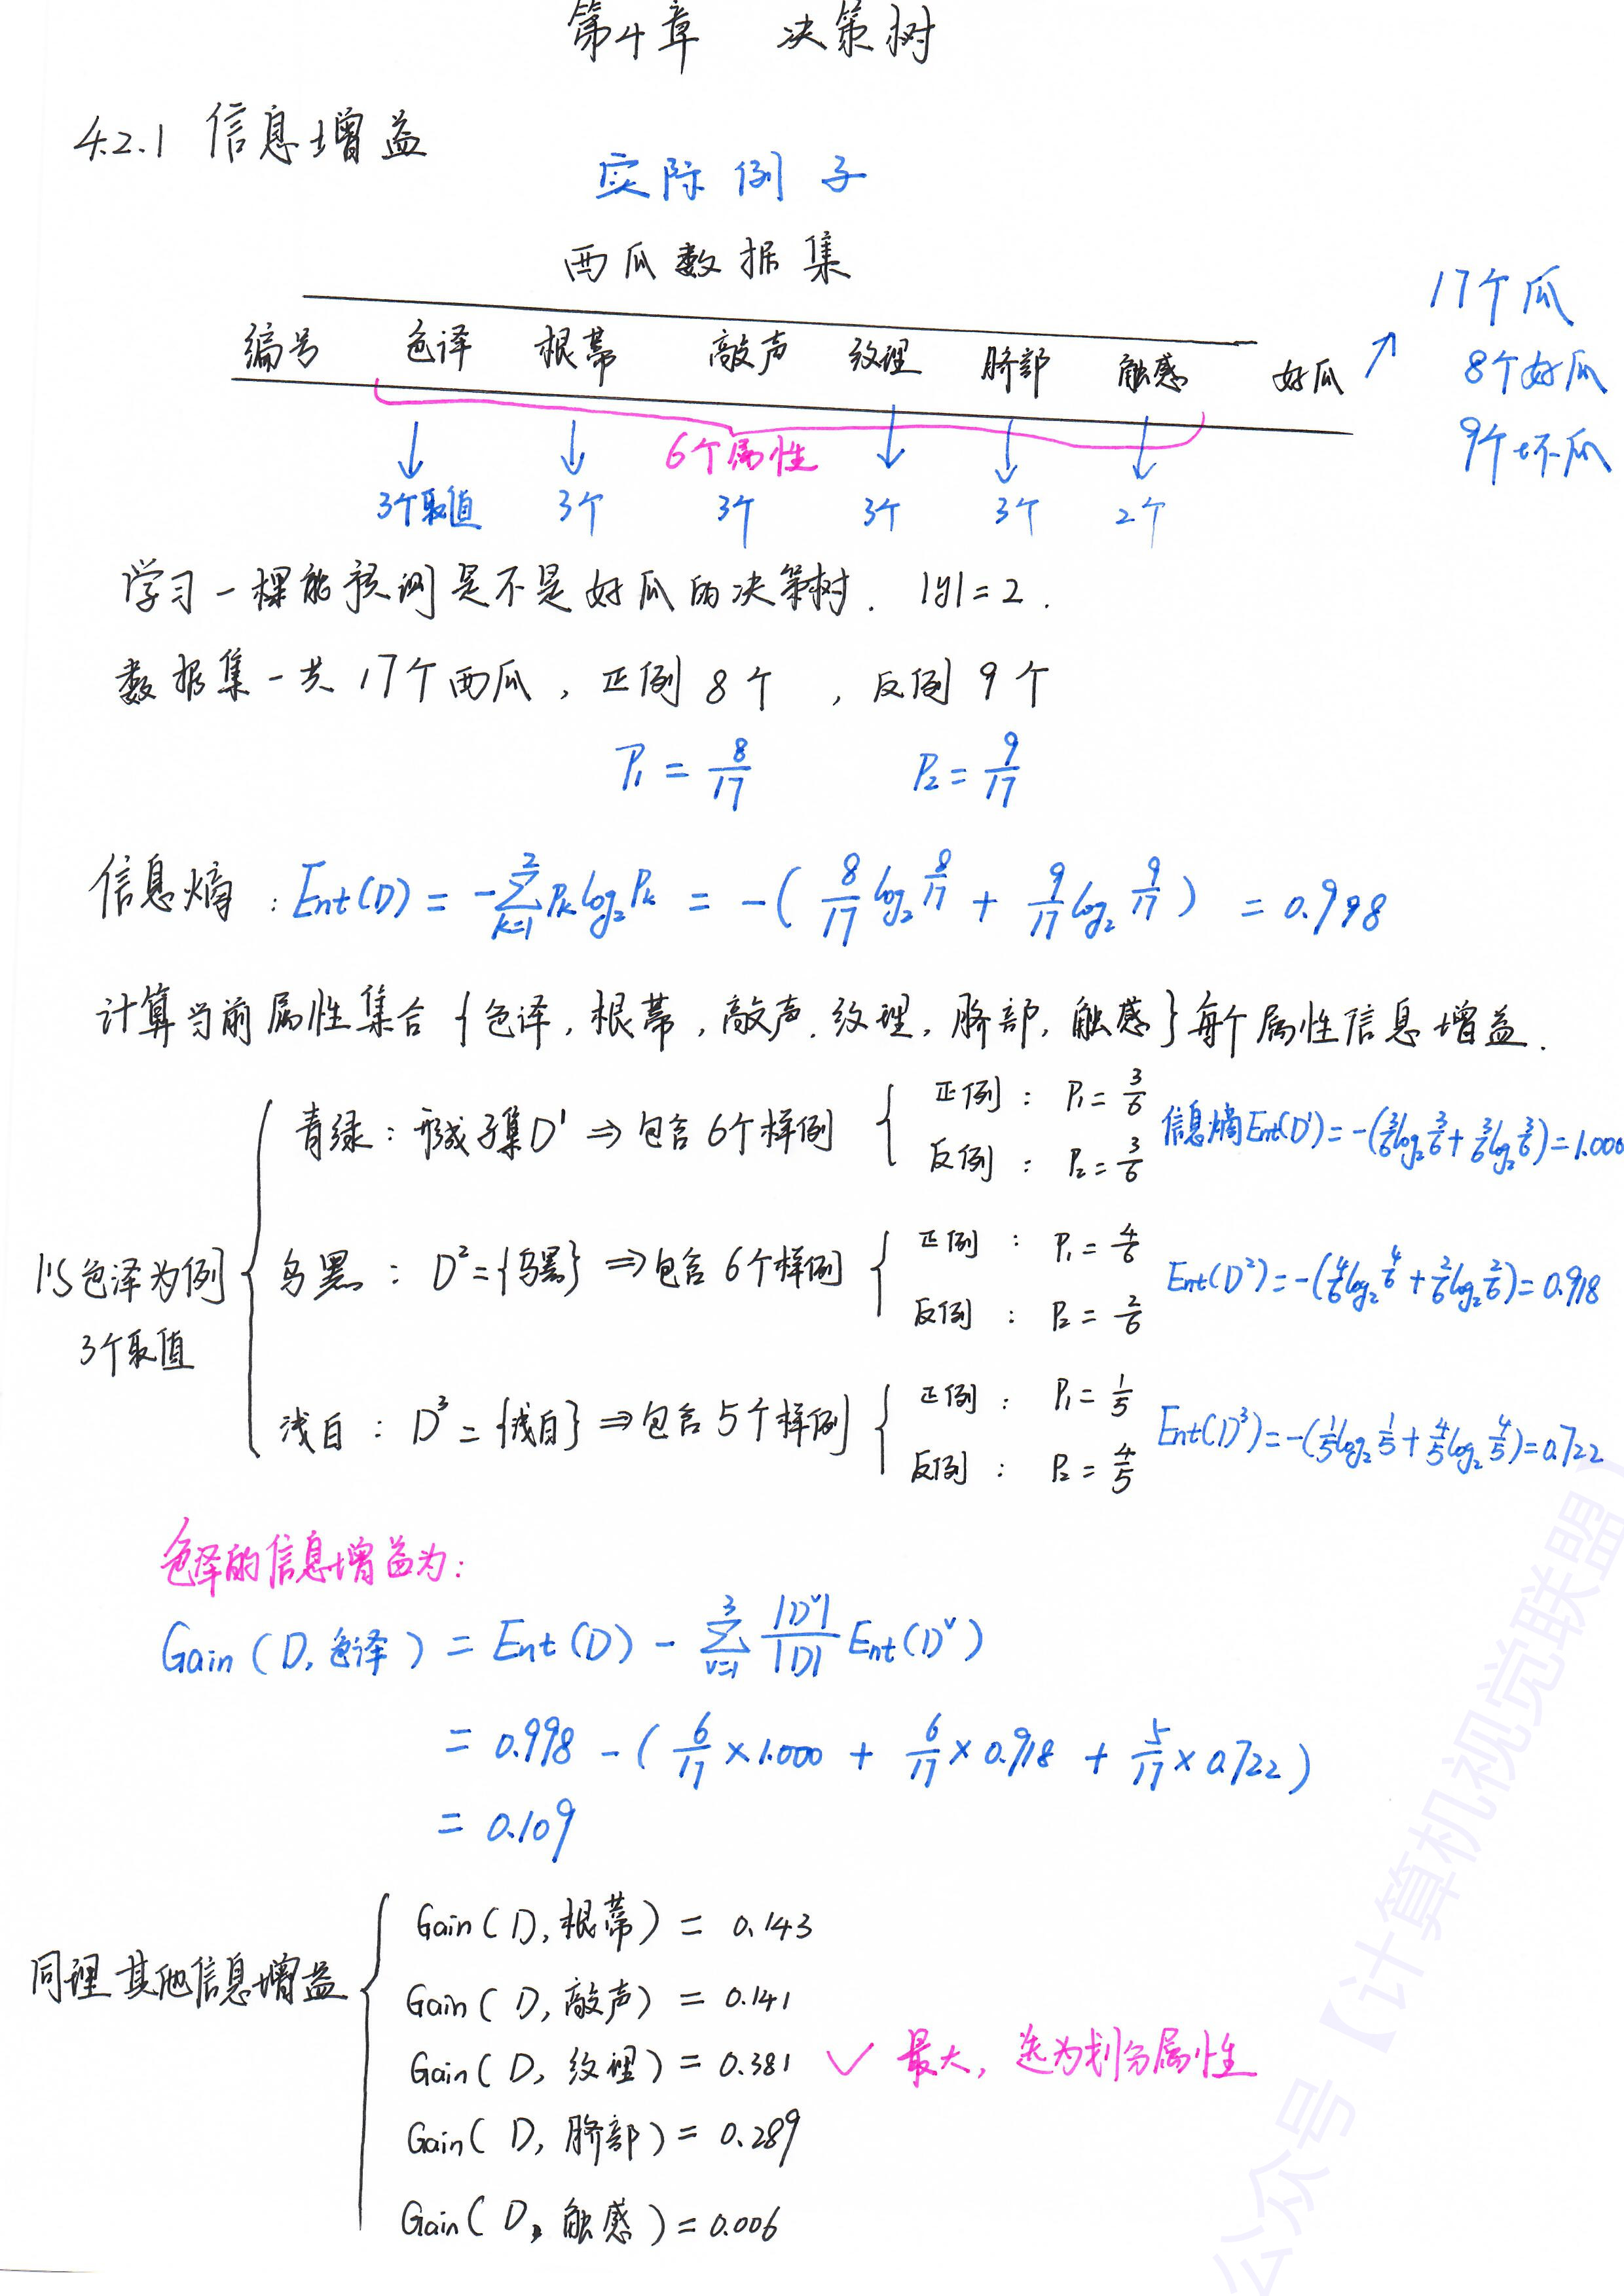 第4章 决策树
4.2.1 信息增益
实际例子
西瓜数据集
17个瓜
8个好瓜
9个坏瓜
编号 色泽 根蒂 敲声 纹理 脐部 触感 好瓜 ↗
6个属性
3个取值 3个 3个 3个 3个 2个
学习一棵能预测是不是好瓜的决策树. |y|=2.
数据集一共17个西瓜,正例8个,反例9个
P₁ = 8/17 P₂ = 9/17
信息熵:Ent(D) = -∑_{k=1}^{2} Pₖ log₂Pₖ = -(8/17 log₂ 8/17 + 9/17 log₂ 9/17) = 0.998
计算当前属性集合{色泽,根蒂,敲声.纹理,脐部,触感}每个属性信息增益.
以色泽为例
3个取值
青绿:形成子集D¹ ⇒ 包含6个样例
正例:P₁ = 3/6
反例:P₂ = 3/6
信息熵Ent(D¹) = -(3/6 log₂ 3/6 + 3/6 log₂ 3/6) = 1.000
乌黑:D² = {乌黑} ⇒ 包含6个样例
正例:P₁ = 4/6
反例:P₂ = 2/6
Ent(D²) = -(4/6 log₂ 4/6 + 2/6 log₂ 2/6) = 0.918
浅白:D³ = {浅白} ⇒ 包含5个样例
正例:P₁ = 1/5
反例:P₂ = 4/5
Ent(D³) = -(1/5 log₂ 1/5 + 4/5 log₂ 4/5) = 0.722
色泽的信息增益为:
Gain(D,色泽) = Ent(D) - ∑_{v=1}^{3} |Dᵛ|/|D| Ent(Dᵛ)
= 0.998 - (6/17 × 1.000 + 6/17 × 0.918 + 5/17 × 0.722)
= 0.109
同理其他信息增益
Gain(D,根蒂) = 0.143
Gain(D,敲声) = 0.141
Gain(D,纹理) = 0.381 ✓ 最大,选为划分属性
Gain(D,脐部) = 0.289
Gain(D,触感) = 0.006
公众号【计算机视觉联盟】